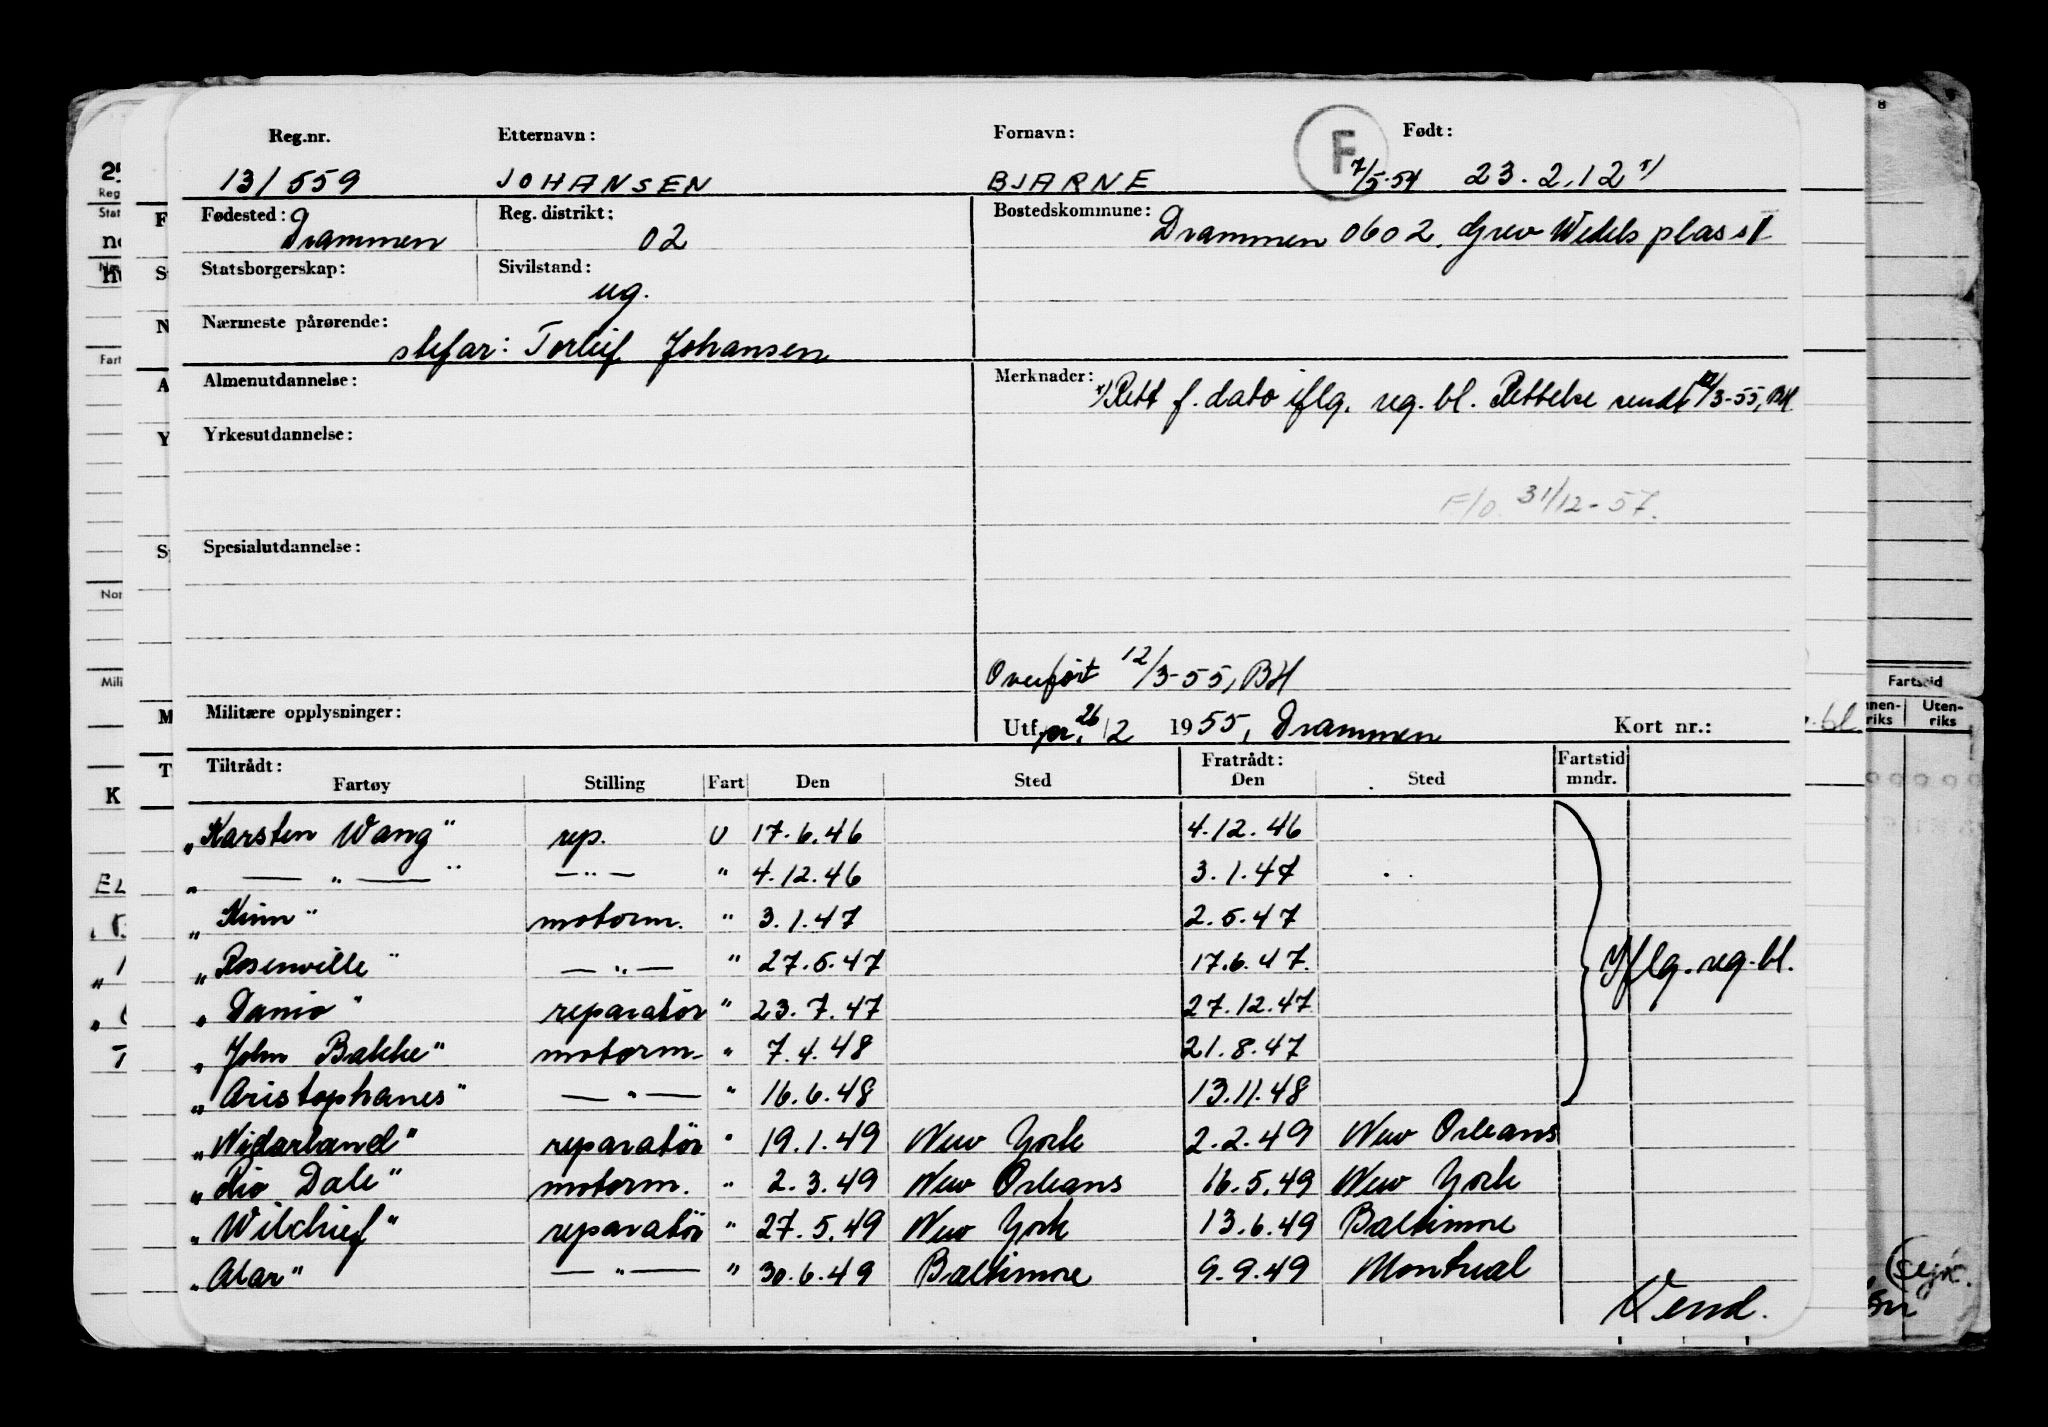 Reg.nr. Etternavn: Fornavn: F Født:
13/559 JOHANSEN BJARNE 7/5-54 23.2.12 x)
Fødested: Drammen Reg. distrikt: 02 Bostedskommune: Drammen 0602, Grev Wedels plass 1
Statsborgerskap: Sivilstand: ug.
Nærmeste pårørende: stefar: Torleif Johansen
Almenutdannelse: Merknader: x) Rett f. dato iflg. reg. bl. Rettelse sendt 12/3-55, BH
Yrkesutdannelse:
F/O 31/12-57.
Spesialutdannelse:
Overført 12/3-55, BH
Militære opplysninger: Utf. pr. 26/2 1955, Drammen Kort nr.:
Tiltrådt: Fratrådt: Fartstid
Fartøy Stilling Fart Den Sted Den Sted mndr.
"Karsten Wang" rep. U 17.6.46 4.12.46
" — " — " — " — " 4.12.46 3.1.47
"Kinn" motorm. " 3.1.47 2.5.47
"Rosenville" — " — " 27.5.47 17.6.47. Iflg. reg. bl.
"Danio" reparatör " 23.7.47 27.12.47
"John Bakke" motorm. " 7.4.48 21.8.47
"Aristophanes" — " — " 16.6.48 13.11.48
"Nidarland" reparatör " 19.1.49 New York 2.2.49 New Orleans
"Rio Dale" motorm. " 2.3.49 New Orleans 16.5.49 New York
"Wilchief" reparatör " 27.5.49 New York 13.6.49 Baltimore
"Alar" — " — " 30.6.49 Baltimore 9.9.49 Montreal
Vend.
Fartstid
Uten-
riks